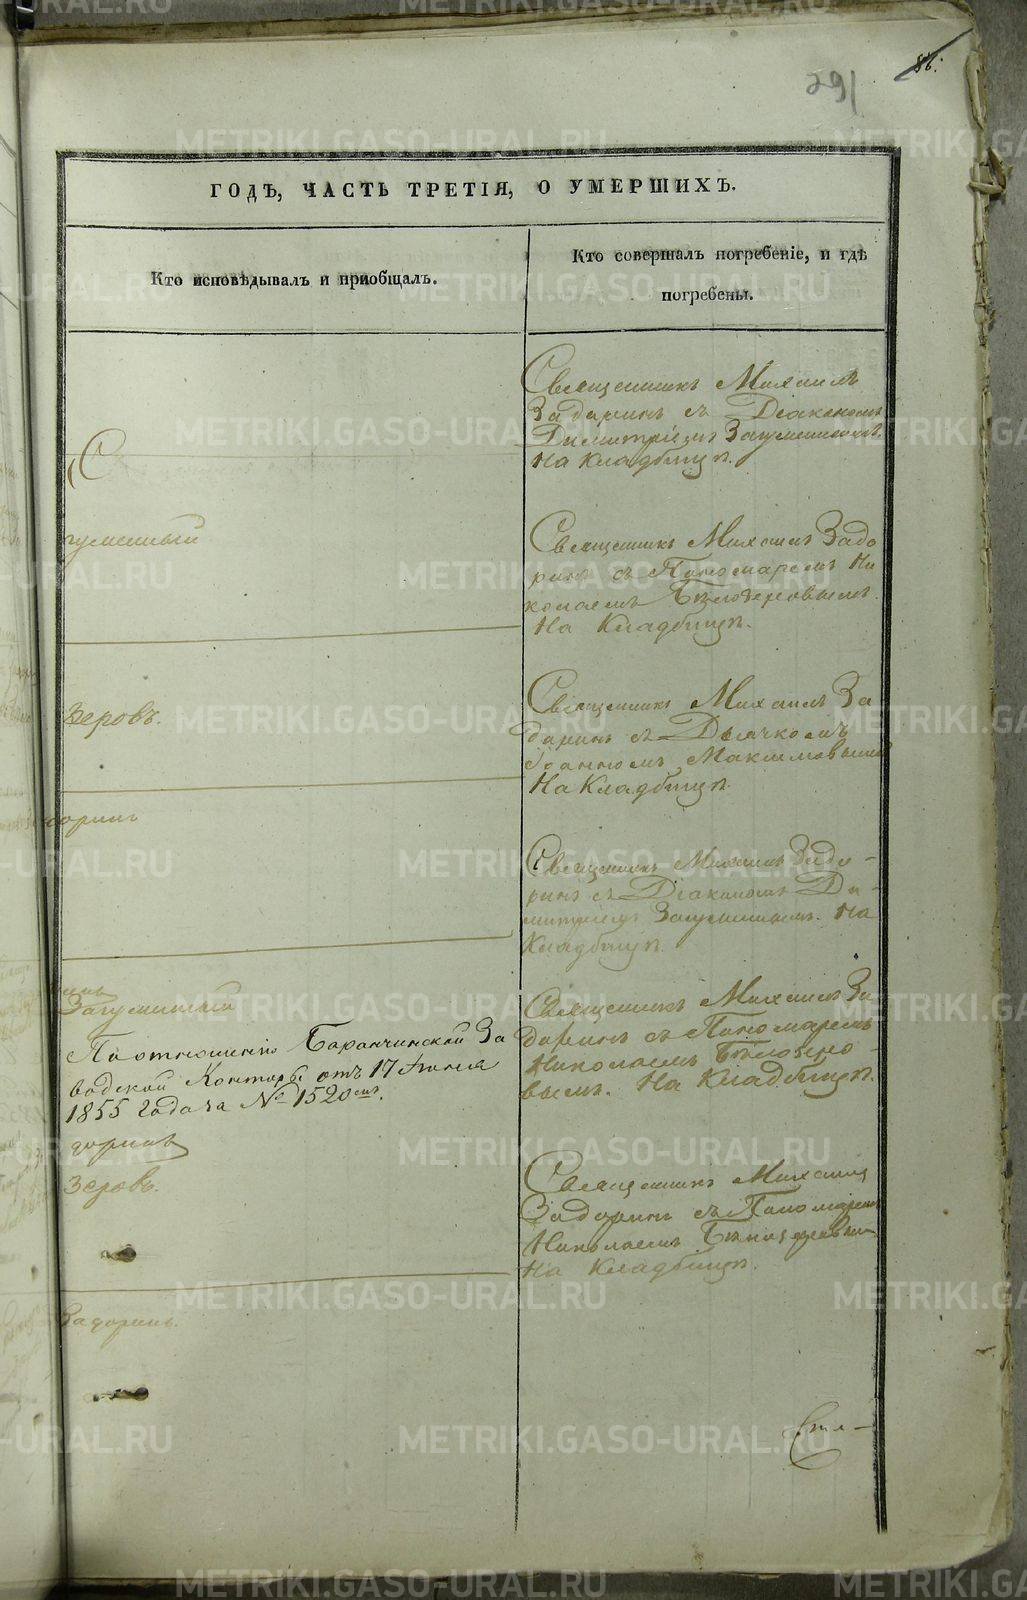 86.
291
ГОДѢ, ЧАСТЬ ТРЕТІЯ, О УМЕРШИХЪ.
Кто исповѣдывалъ и приобщалъ.
Кто совершалъ погребеніе, и гдѣ
погребены.
Священникъ Михаилъ
Задоринъ съ Діакономъ
Димитріемъ Загуменнымъ.
На Кладбищѣ.
гуменный
Священникъ Михаилъ Задо
ринъ съ Пономаремъ Ни
колаемъ Бѣлозеровымъ.
На Кладбищѣ.
зеровъ.
Священникъ Михаилъ За
доринъ съ Дьячкомъ
Іоанномъ Максимовымъ
На Кладбищѣ.
доринъ
Священникъ Михаилъ Задо-
ринъ съ Діакономъ Ди-
митріемъ Загуменнымъ. На
Кладбищѣ.
Загуменный
По отношенію Баранчинской За
водской Конторы отъ 17 Іюня
1855 года за № 1520мъ.
доринъ
зеровъ.
Священникъ Михаилъ За
доринъ съ Пономаремъ
Николаемъ Бѣлозеро-
вымъ. На Кладбищѣ.
Священникъ Михаилъ
Задоринъ съ Пономаремъ
Николаемъ Бѣлозеровым
На Кладбищѣ.
Задоринъ.
METRIKI.GASO-URAL.RU